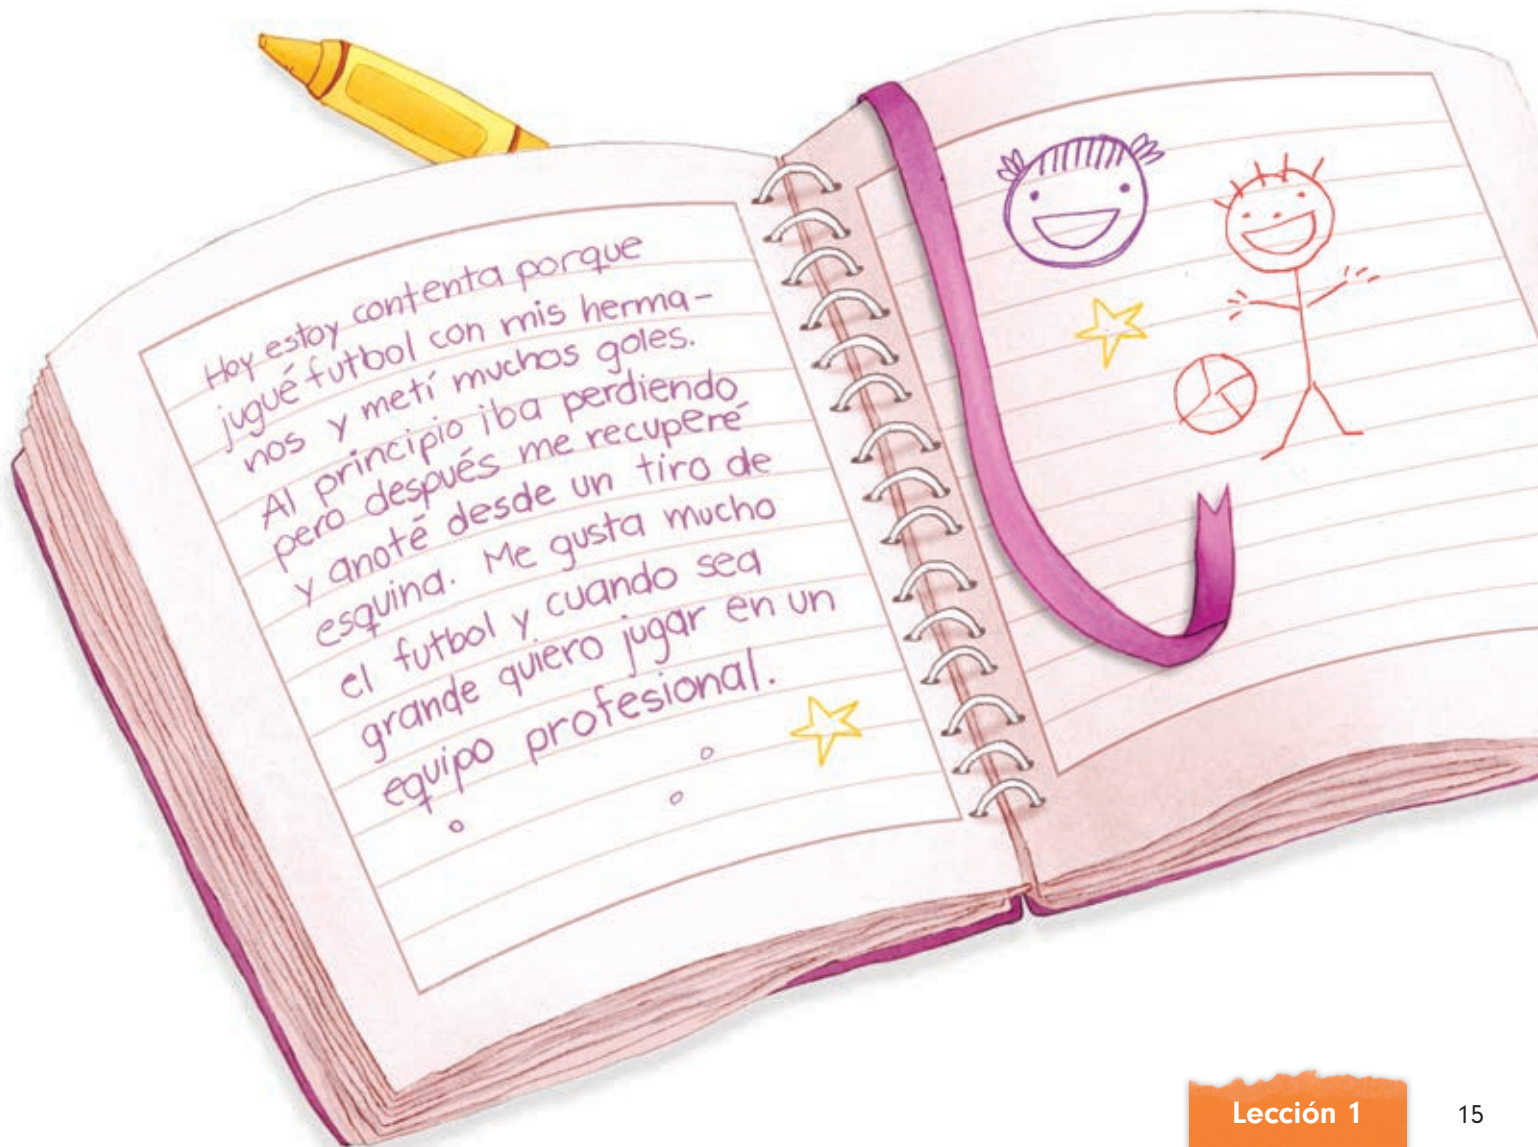 Hoy estoy contenta porque
jugué futbol con mis herma-
nos y metí muchos goles.
Al principio iba perdiendo
pero después me recuperé
y anoté desde un tiro de
esquina. Me gusta mucho
el futbol y cuando sea
grande quiero jugar en un
equipo profesional.
Lección 1
15